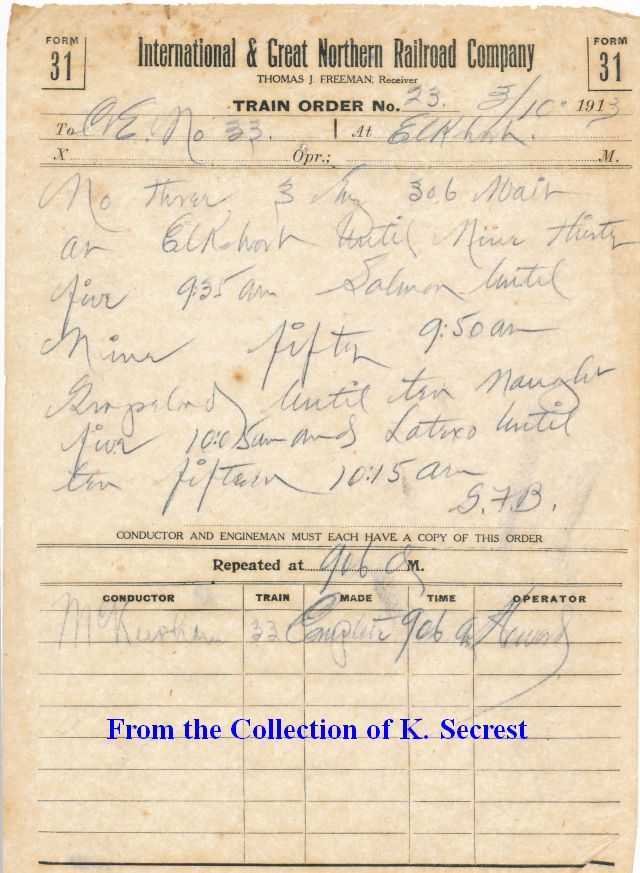 FORM 31
International & Great Northern Railroad Company
FORM 31
THOMAS J. FREEMAN, Receiver
TRAIN ORDER No. 23. 3/10" 1913
To C&E. No 33. At Elkhart.
X Opr.; M.
No three 3 Eng 306 Wait
at Elkhart Until Nine thirty
five 9:35 am Salmon Until
Nine fifty 9:50 am
Grapeland Until ten Naught
five 10:05 am and Latexo Until
ten fifteen 10:15 am
G.F.B.
CONDUCTOR AND ENGINEMAN MUST EACH HAVE A COPY OF THIS ORDER
Repeated at 906 a M.
CONDUCTOR TRAIN MADE TIME OPERATOR
33 Complete 906 a Howard
From the Collection of K. Secrest